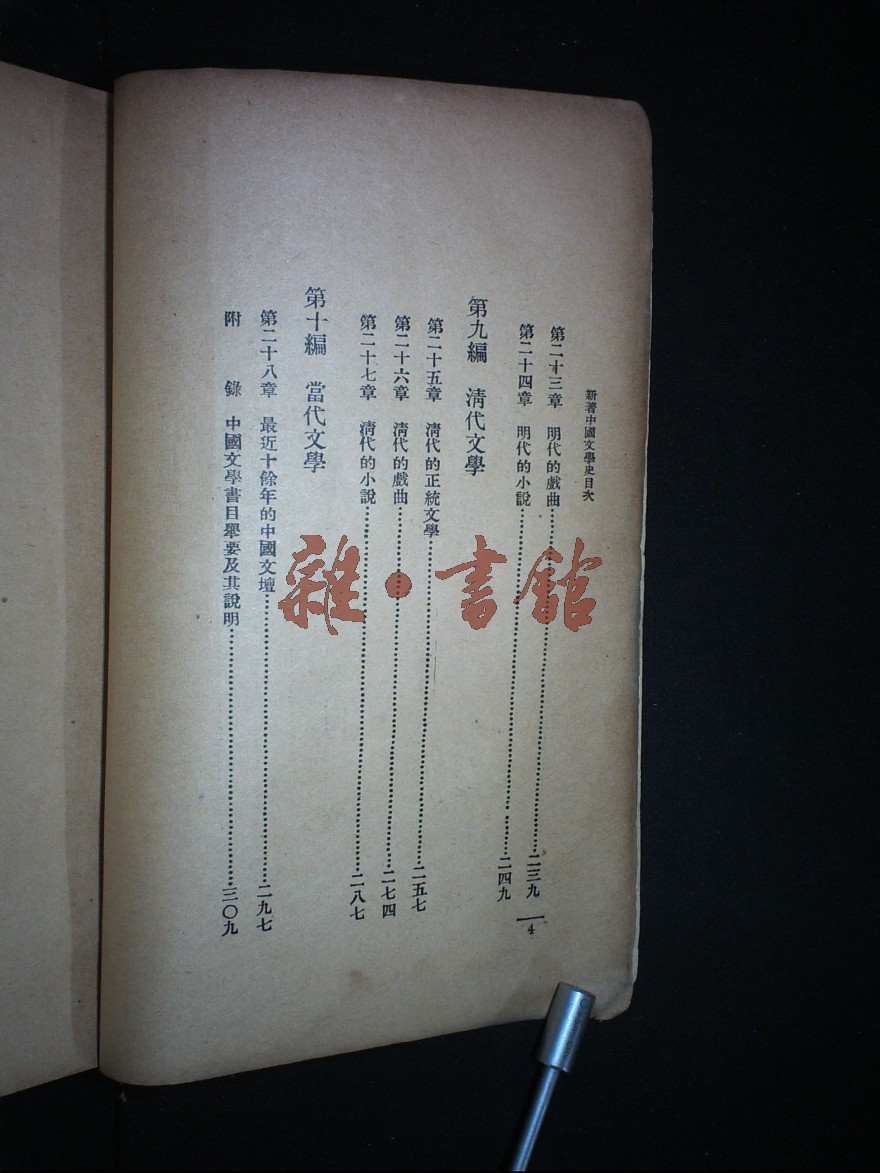 新著中國文學史目次
第二十三章　明代的戲曲…………二三九
第二十四章　明代的小說…………二四九
第九編　清代文學
第二十五章　清代的正統文學…………二五七
第二十六章　清代的戲曲…………二七四
第二十七章　清代的小說…………二八七
第十編　當代文學
第二十八章　最近十餘年的中國文壇…………二九七
附　錄　中國文學書目舉要及其說明…………三〇九
4
雜·書館